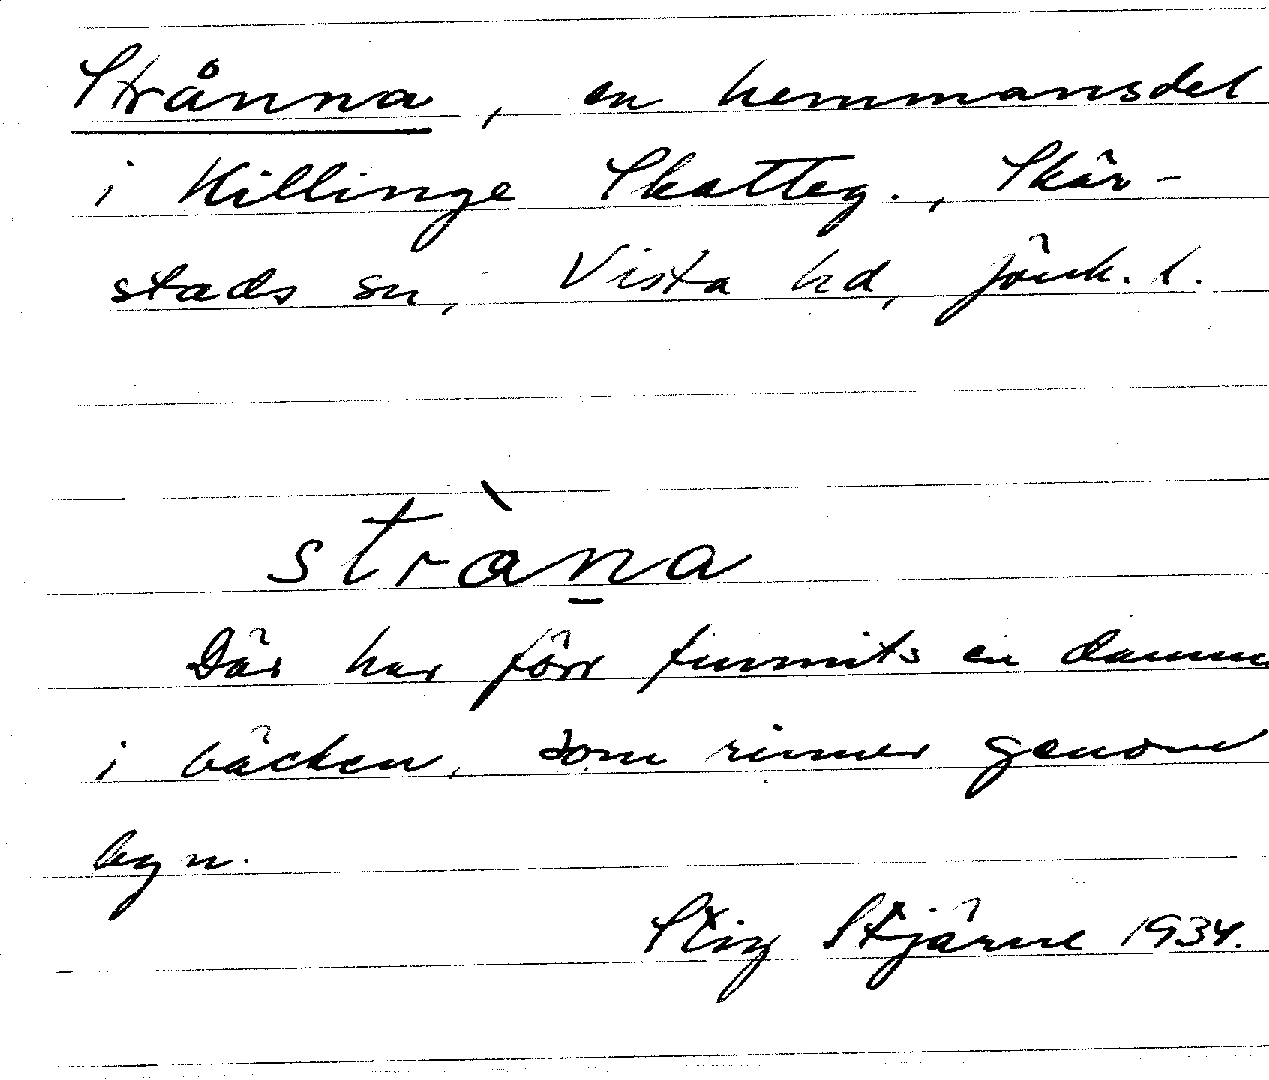 Strånna, en hemmansdel
i Killinge Skatteg., Skär-
stads sn, Vista hd, Jönk. l.
stràn̲a
Där har förr funnits en damm
i bäcken, som rinner genom
byn.
Stig Stjärne 1934.